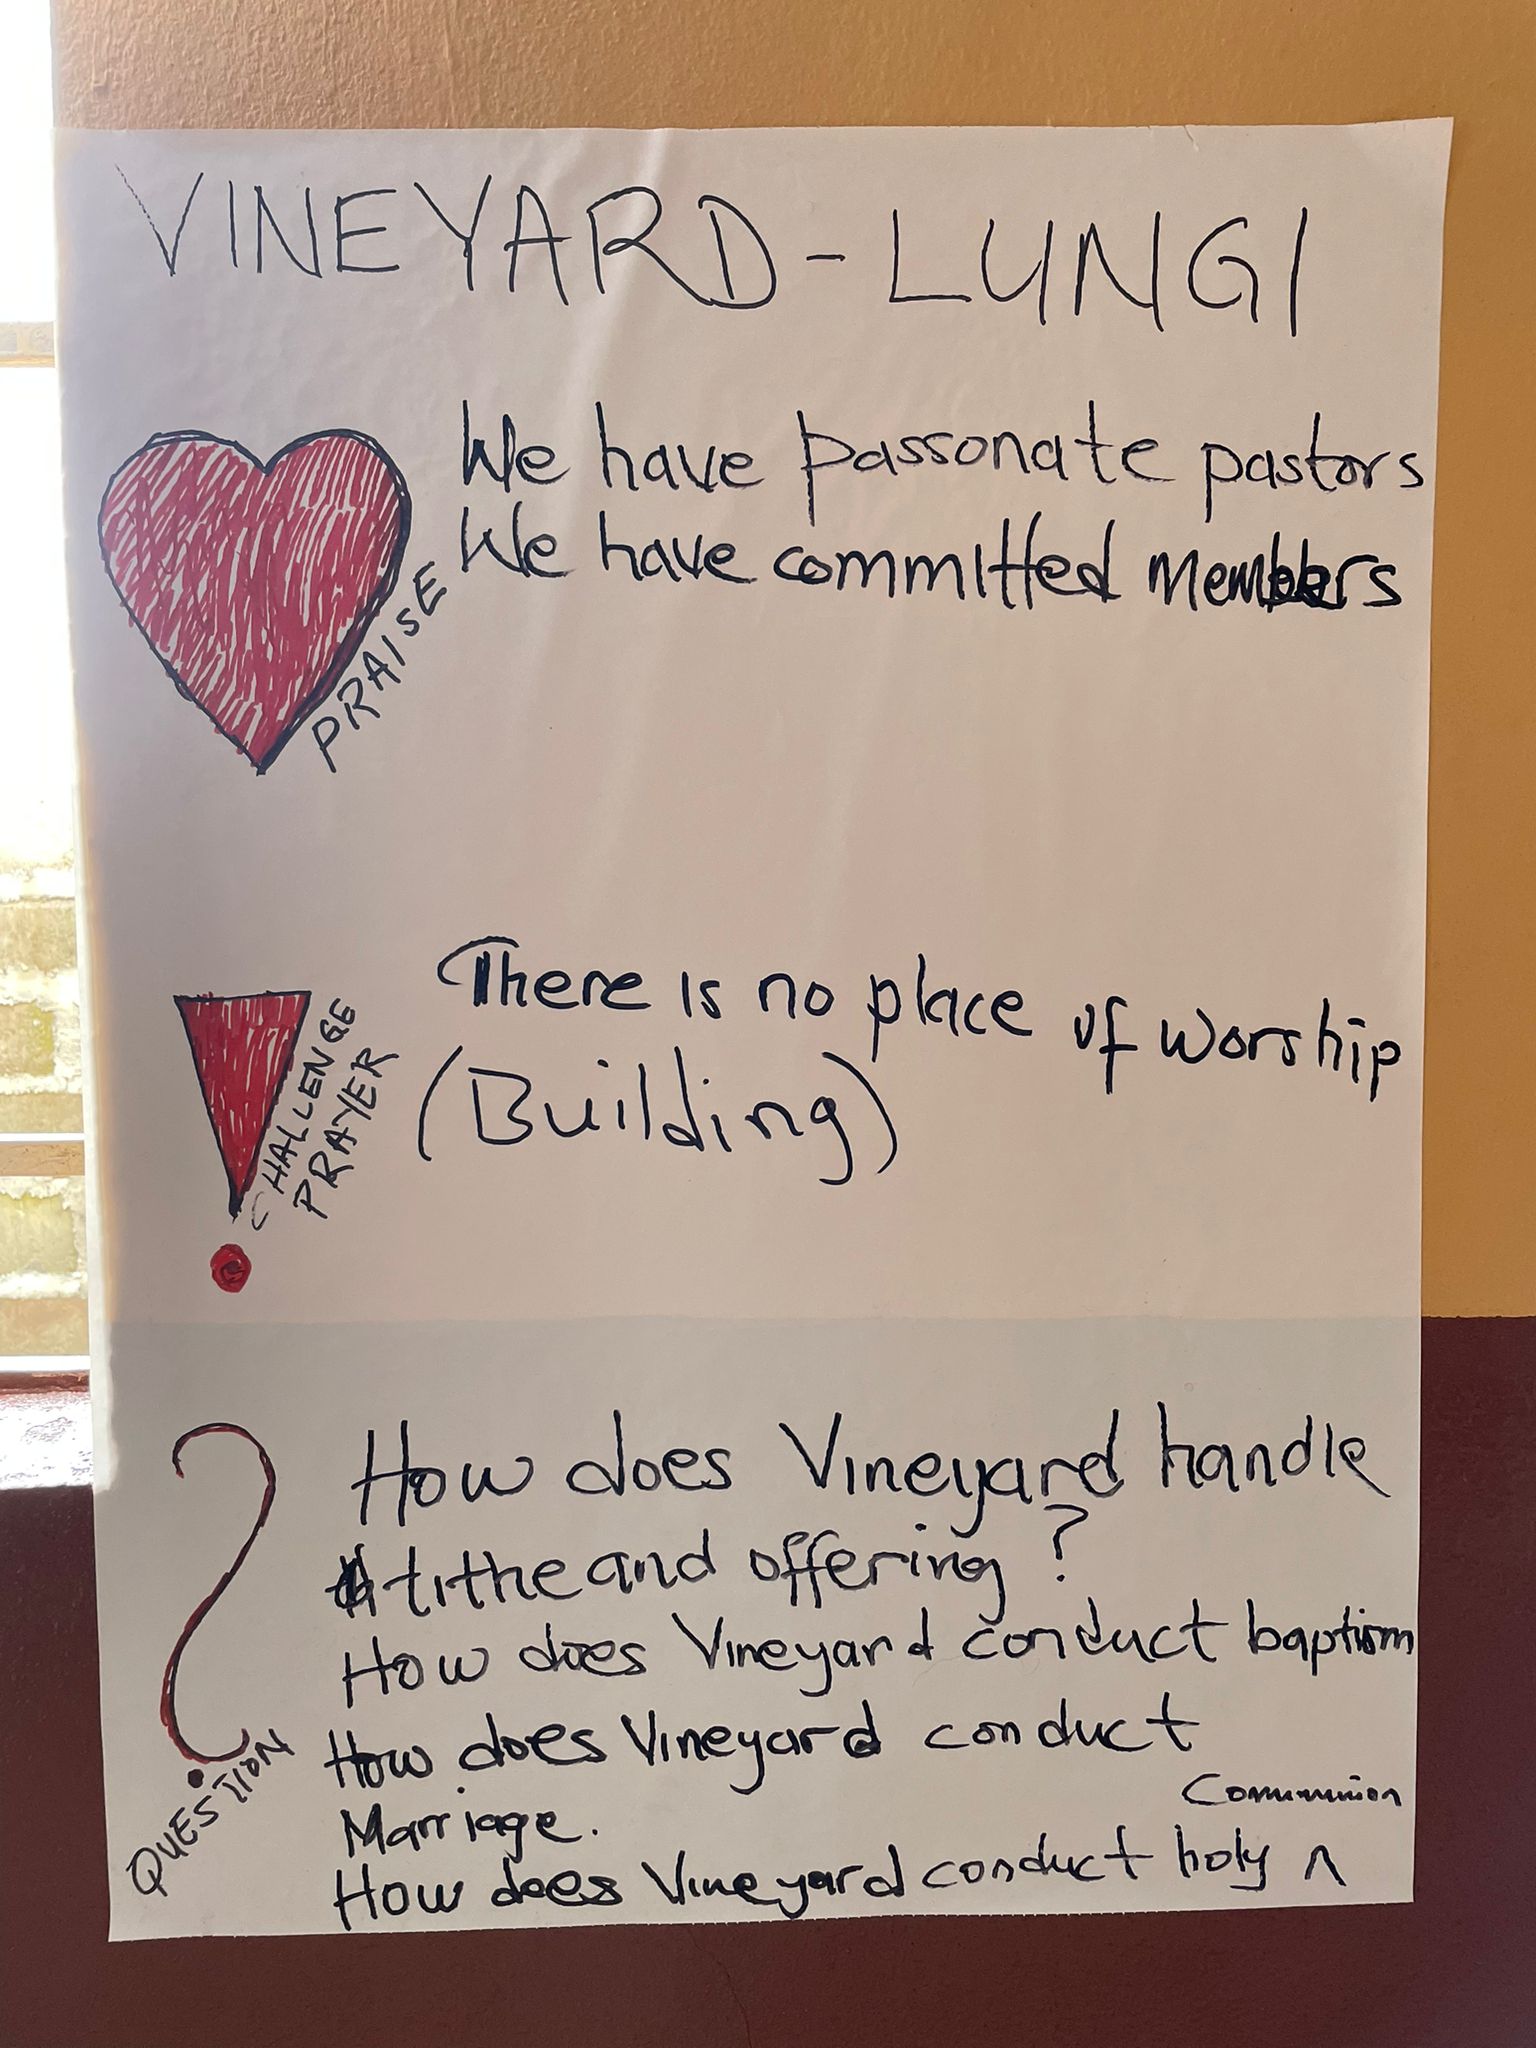 VINEYARD - LUNGI
We have passonate pastors
We have committed Members
PRAISE
There is no place of worship
(Building)
CHALLENGE
PRAYER
How does Vineyard handle
tithe and offering?
How does Vineyard conduct baptism
How does Vineyard conduct
Marriage.
How does Vineyard conduct holy ^ Communion
QUESTION